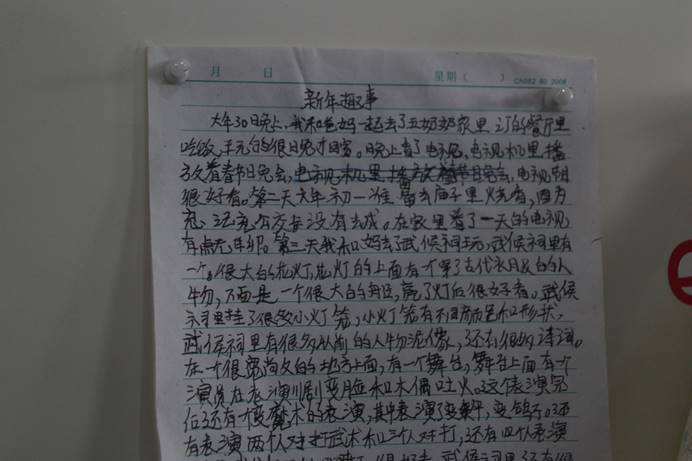 月 日 星期( ) Ch062 80 2008
新年趣事
大年30日晚上,我和爸妈一起去了五奶奶家里订的餐厅里
吃饭,玩的很日晚才回家。晚上看了电视,电视机里播
放着春节日晚会,电视机里播放着春节日晚会,电视节目
很好看。第二天大年初一准备去庙子里烧香,因为
公交车没有去成。在家里看了一天的电视
有点无聊。第三天我和妈去了武侯祠玩,武侯祠里有
一个很大的花灯,花灯的上面有个穿了古代衣服的人
物,下面是一个很大的舟,亮了灯后很好看。武侯
祠里挂了很多小灯笼,小灯笼有不同颜色和形状,
武侯祠里有很多从前的人物泥像,还有很多诗词。
在一个很宽的地方上面,有一个舞台,舞台上面有个
演员在表演川剧变脸和木偶吐火。这表演完
后还有个变魔术的表演,其中表演了变,变鸽子。还
有表演两个人对打武术和三个人对打,还有四个人表演
很好看,武侯祠里还有很